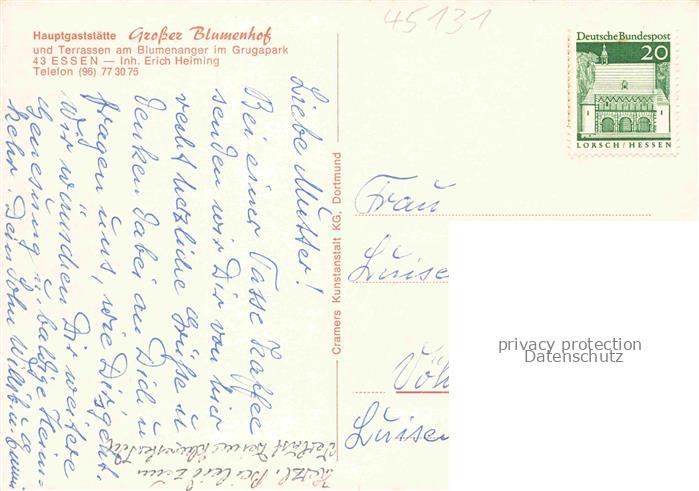 45131
Hauptgaststätte Großer Blumenhof
und Terrassen am Blumenanger im Grugapark
43 ESSEN — Inh. Erich Heiming
Telefon (96) 77 30 75
Deutsche Bundespost
20
LORSCH/HESSEN
Liebe Mutter!
Bei einer Tasse Kaffee
senden wir Dir von hier
recht herzliche Grüße u
denken dabei an Dich u
fragen uns, wie Dirs geht.
Wir wünschen Dir weitere
Genesung u. baldige Heim=
kehr. Dein Sohn Willi u
Herzl. Beileid zum
Verlust Deines
Cramers Kunstanstalt KG, Dortmund
Frau
Luise
Vöh
Luisen
privacy protection
Datenschutz